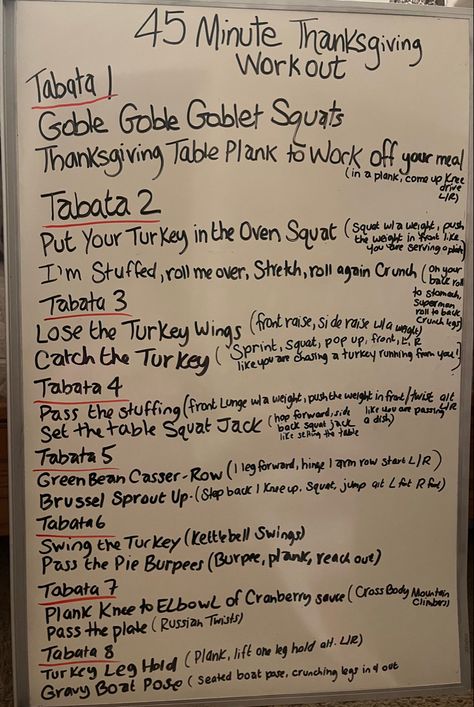 45 Minute Thanksgiving
Workout
Tabata 1
Goble Goble Goblet Squats
Thanksgiving Table Plank to Work off your meal
(in a plank, come up knee
drive
L/R)
Tabata 2
Put Your Turkey in the Oven Squat (Squat w/ a weight, push
the weight in front like
you are serving a plate)
I'm Stuffed, roll me over, Stretch, roll again Crunch (on your
back roll
to stomach,
Superman
roll to back
Crunch legs)
Tabata 3
Lose the Turkey Wings (front raise, side raise w/ a weight)
Catch the Turkey (Sprint, Squat, pop up, front, L, R
like you are chasing a turkey running from you!)
Tabata 4
Pass the stuffing (front Lunge w/ a weight, push the weight in front/twist alt L/R
like you are passing
a dish)
Set the table Squat Jack (hop forward, side
back squat jack
like setting the table
Tabata 5
Green Bean Casser-Row (1 leg forward, hinge 1 arm row start L/R)
Brussel Sprout Up - (Step back 1 Knee up. Squat, jump alt L R)
Tabata 6
Swing the Turkey (Kettlebell Swings)
Pass the Pie Burpees (Burpee, plank, reach out)
Tabata 7
Plank Knee to Elbowl of Cranberry sauce (Cross Body Mountain
Climbers)
Pass the plate (Russian Twists)
Tabata 8
Turkey Leg Hold (Plank, lift one leg hold alt. L/R)
Gravy Boat Pose (Seated boat pose, crunching legs in & out